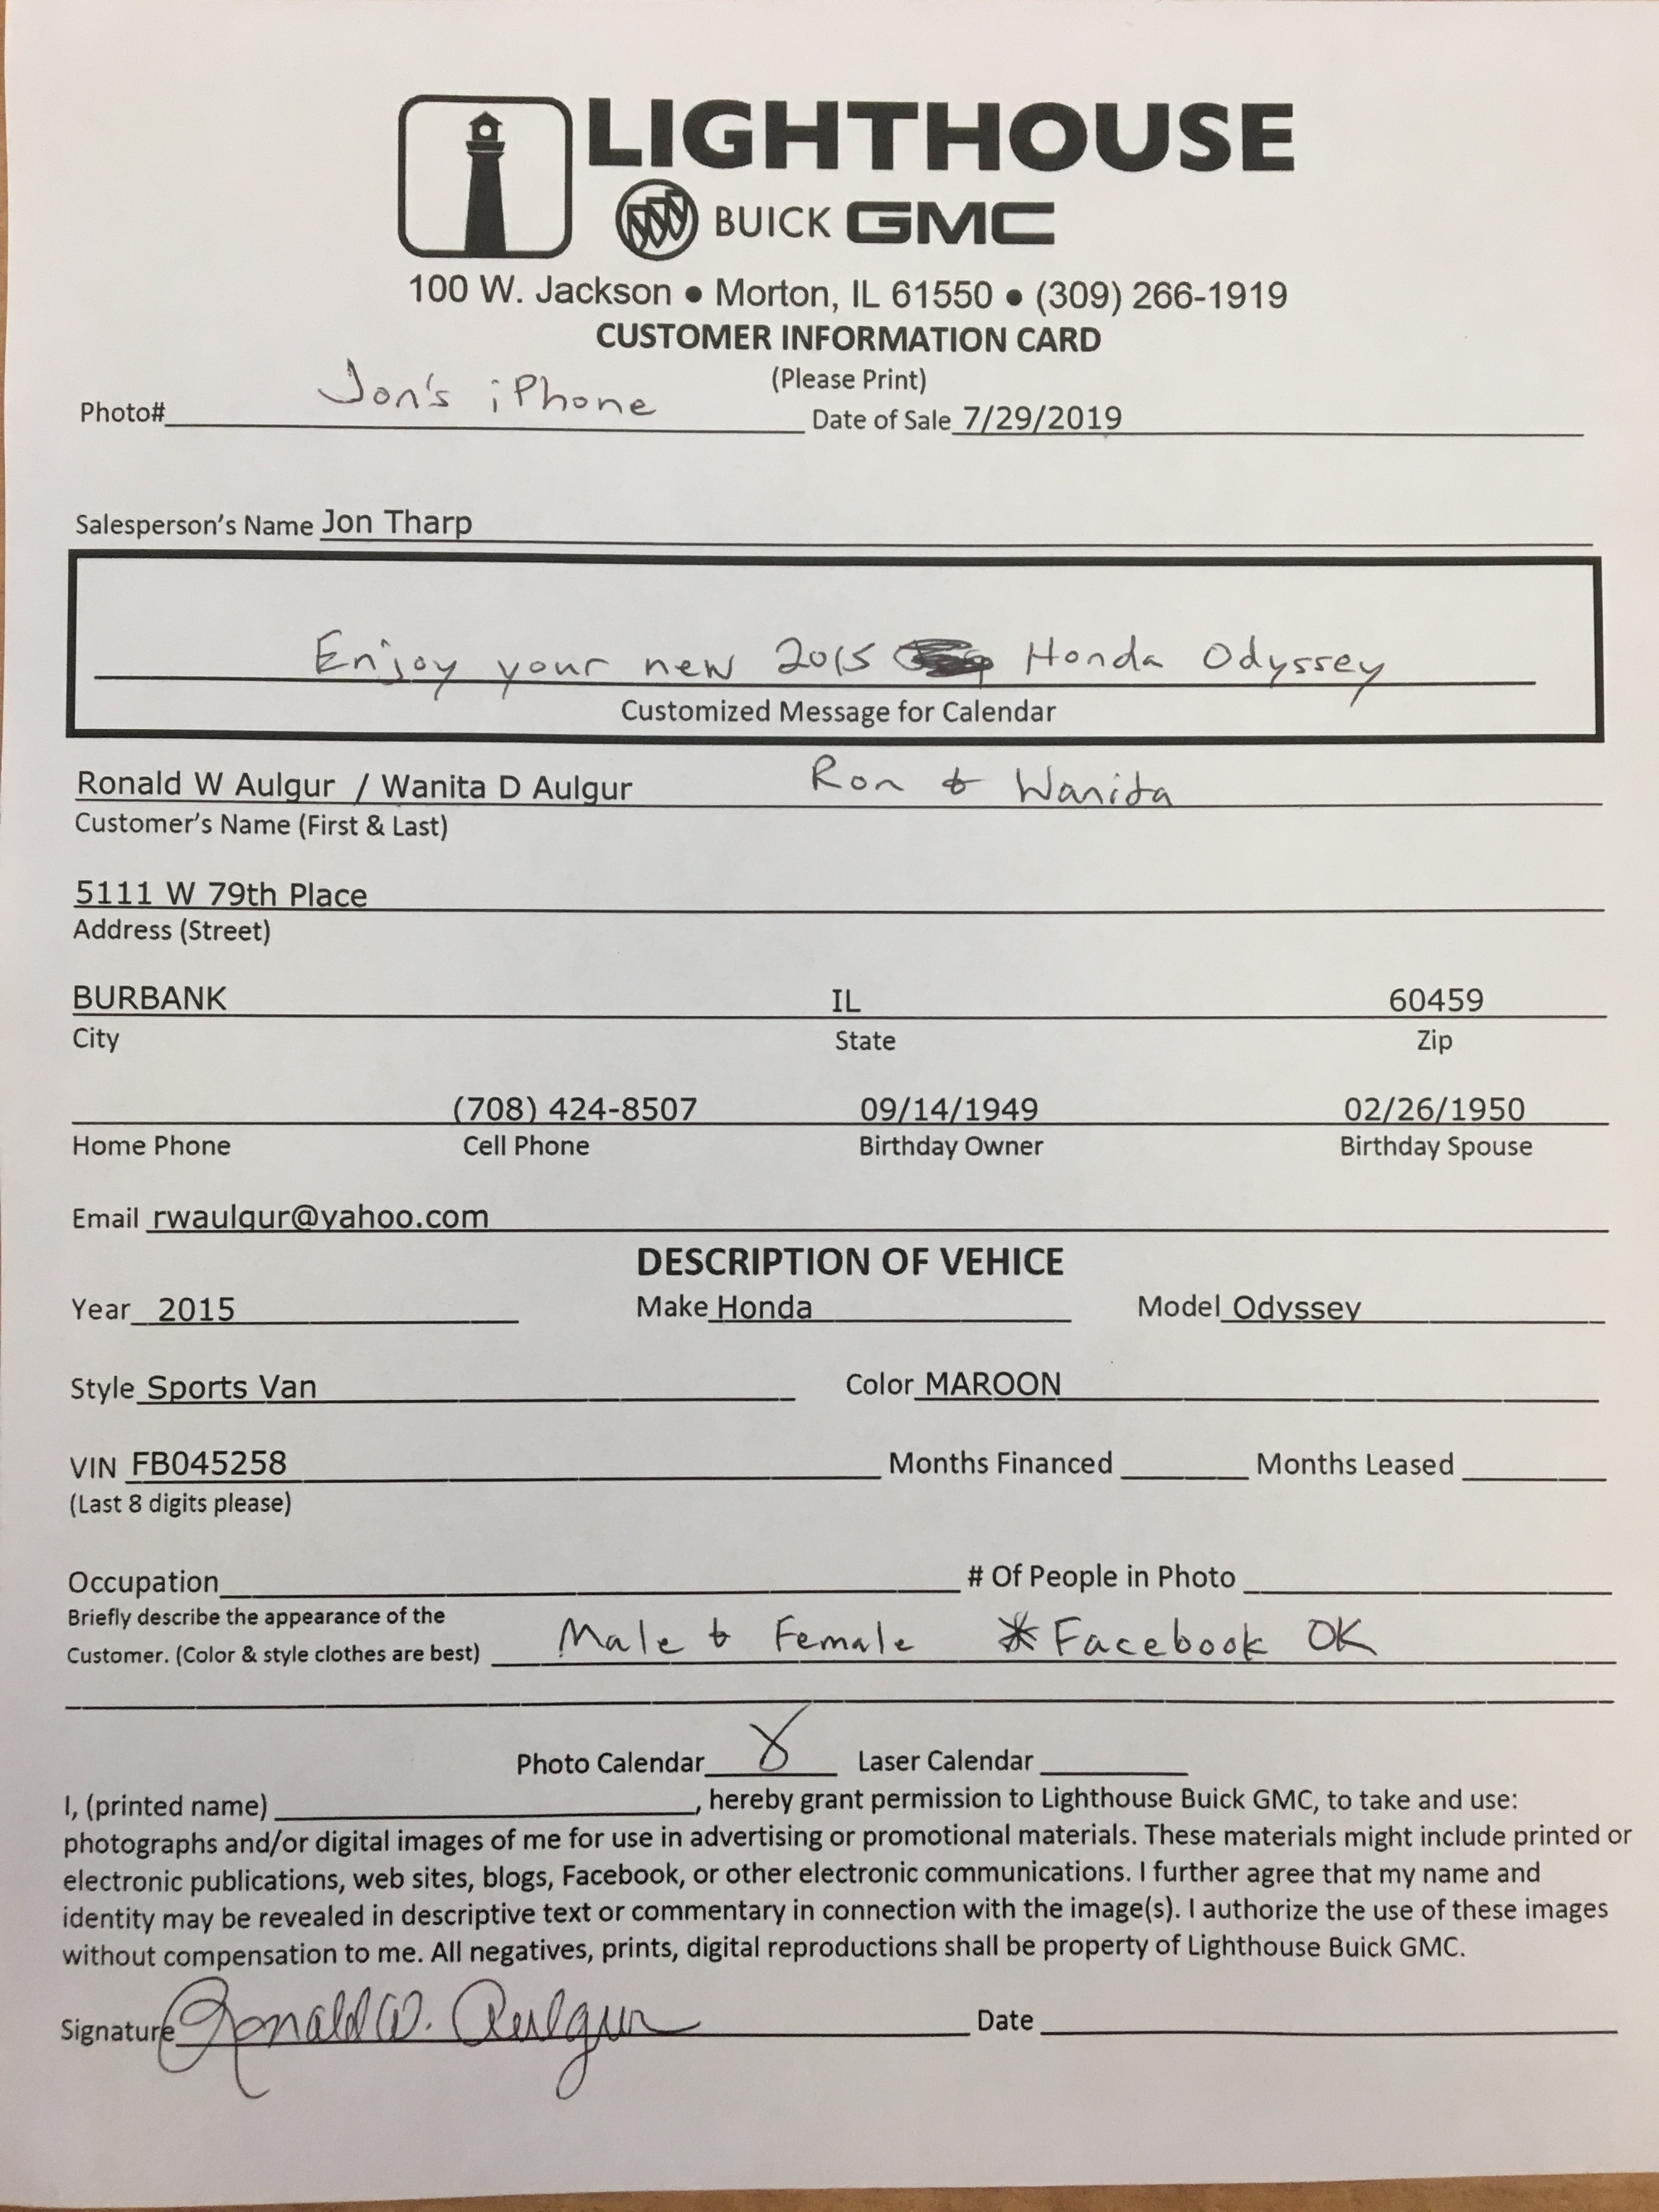 LIGHTHOUSE
BUICK GMC
100 W. Jackson • Morton, IL 61550 • (309) 266-1919
CUSTOMER INFORMATION CARD
(Please Print)
Photo# Jon's iPhone Date of Sale 7/29/2019
Salesperson's Name Jon Tharp
Enjoy your new 2015 Honda Odyssey
Customized Message for Calendar
Ronald W Aulgur / Wanita D Aulgur Ron & Wanita
Customer's Name (First & Last)
5111 W 79th Place
Address (Street)
BURBANK IL 60459
City State Zip
(708) 424-8507 09/14/1949 02/26/1950
Home Phone Cell Phone Birthday Owner Birthday Spouse
Email rwaulgur@yahoo.com
DESCRIPTION OF VEHICE
Year 2015 Make Honda Model Odyssey
Style Sports Van Color MAROON
VIN FB045258 Months Financed Months Leased
(Last 8 digits please)
Occupation # Of People in Photo
Briefly describe the appearance of the
Customer. (Color & style clothes are best) Male & Female * Facebook OK
Photo Calendar X Laser Calendar
I, (printed name) , hereby grant permission to Lighthouse Buick GMC, to take and use:
photographs and/or digital images of me for use in advertising or promotional materials. These materials might include printed or
electronic publications, web sites, blogs, Facebook, or other electronic communications. I further agree that my name and
identity may be revealed in descriptive text or commentary in connection with the image(s). I authorize the use of these images
without compensation to me. All negatives, prints, digital reproductions shall be property of Lighthouse Buick GMC.
Signature Ronald W. Aulgur Date